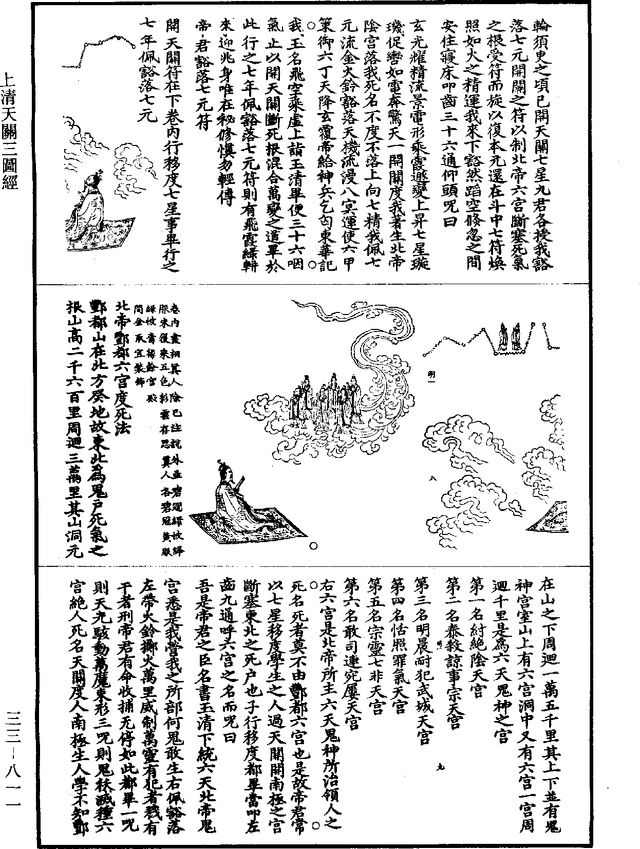 上清天關三圖經
三三－八一一
輪須臾之頃已開天關七星九君各授我豁
落七元開關之符以制北帝六宮斷塞死氣
之根受符而旋以復本元還在斗中七符煥
照如火之精運我來下豁然蹈空倏忽之間
安住寢床叩齒三十六通仰頭呪曰
玄光耀精流景電形乘霞遯變上昇七星璇
璣促轡如電奔驚天一開關度我著生北帝
陰宮落我死名不度不落上向七精我佩七
元流金火鈴豁落天機流漫八冥運使六甲
策御六丁天降玄覆帝給神兵乞匄東華記
我玉名飛空乘虛上詣玉清畢便三十六咽
氣止以開天關斷死根混合萬變之道畢於
此行之七年佩豁落七元符則有飛霞綠軿
來迎兆身唯在秘修慎勿輕傳
帝君豁落七元符
開天關符在下卷內行移度七星事畢行之
七年佩豁落七元
明一
八
卷內畫相其人除已註說外並碧冠緑帔絳
間金朱宜裝飾
北帝酆都六宮度死法
酆都山在北方癸地故東北為鬼戶死氣之
根山高二千六百里周迴三萬里其山洞元
在山之下周迴一萬五千里其上下並有鬼
神宮室山上有六宮洞中又有六宮一宮周
迴千里是為六天鬼神之宮
第一名紂絕陰天宮
第二名泰殺諒事宗天宮
第三名明晨耐犯武城天宮
第四名恬照罪氣天宮
第五名宗靈七非天宮
第六名敢司連宛屢天宮
九
右六宮是北帝所主六天鬼神所治領人之
死名死者莫不由酆都六宮也是故帝君常
以七星移度學生之人過天關開南極之宮
斷塞東北之死戶也子行移度都畢當叩左
齒九通呼六宮之名而呪曰
吾是帝君之臣名書玉清下統六天北帝鬼
宮悉是我營我之所部何鬼敢生右佩豁落
左帶火鈴擲火萬里威制萬靈有犯者戮有
干者刑帝君有命收捕无停如此都畢一呪
則天元駭動萬魔束形三呪則鬼袄滅種六
宮絕人死名天關度人南極生人學不知酆